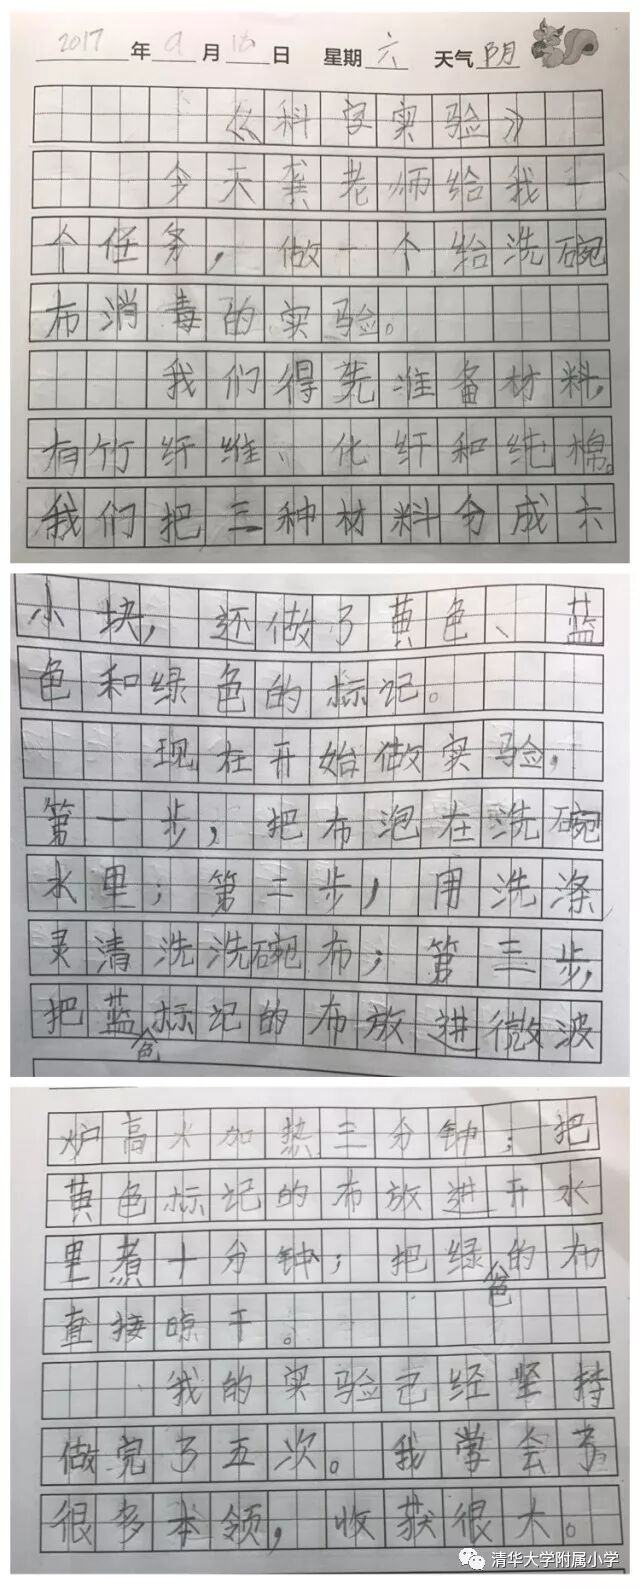 2017年9月16日 星期六 天气阴
《科学实验》
今天龚老师给我一
个任务，做一个给洗碗
布消毒的实验。
我们得先准备材料，
有竹纤维、化纤和纯棉。
我们把三种材料分成六
小块，还做了黄色、蓝
色和绿色的标记。
现在开始做实验，
第一步，把布泡在洗碗
水里；第二步，用洗涤
灵清洗洗碗布；第三步，
把蓝色标记的布放进微波
炉高火加热三分钟；把
黄色标记的布放进开水
里煮十分钟；把绿色的布
直接晾干。
我的实验已经坚持
做完了五次。我学会了
很多本领，收获很大。
清华大学附属小学